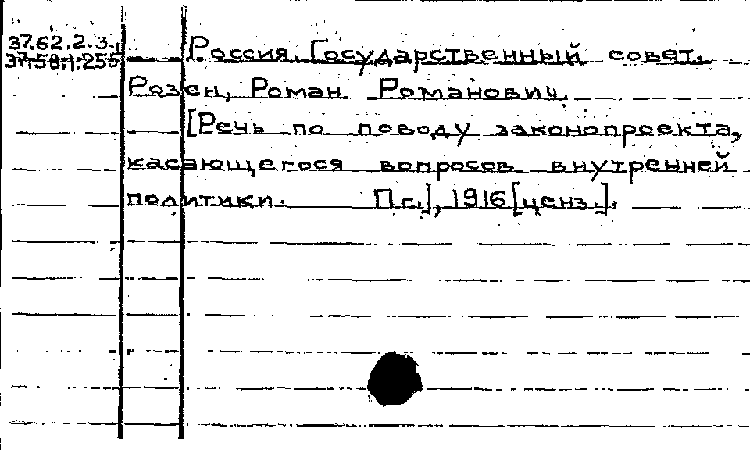 37.62.2.3.
37.58.1.255
Россия. Государственный совет.
Розен, Роман Романович.
[Речь по поводу законопроекта,
касающегося вопросов внутренней
политики. Пг.], 1916 [ценз.].